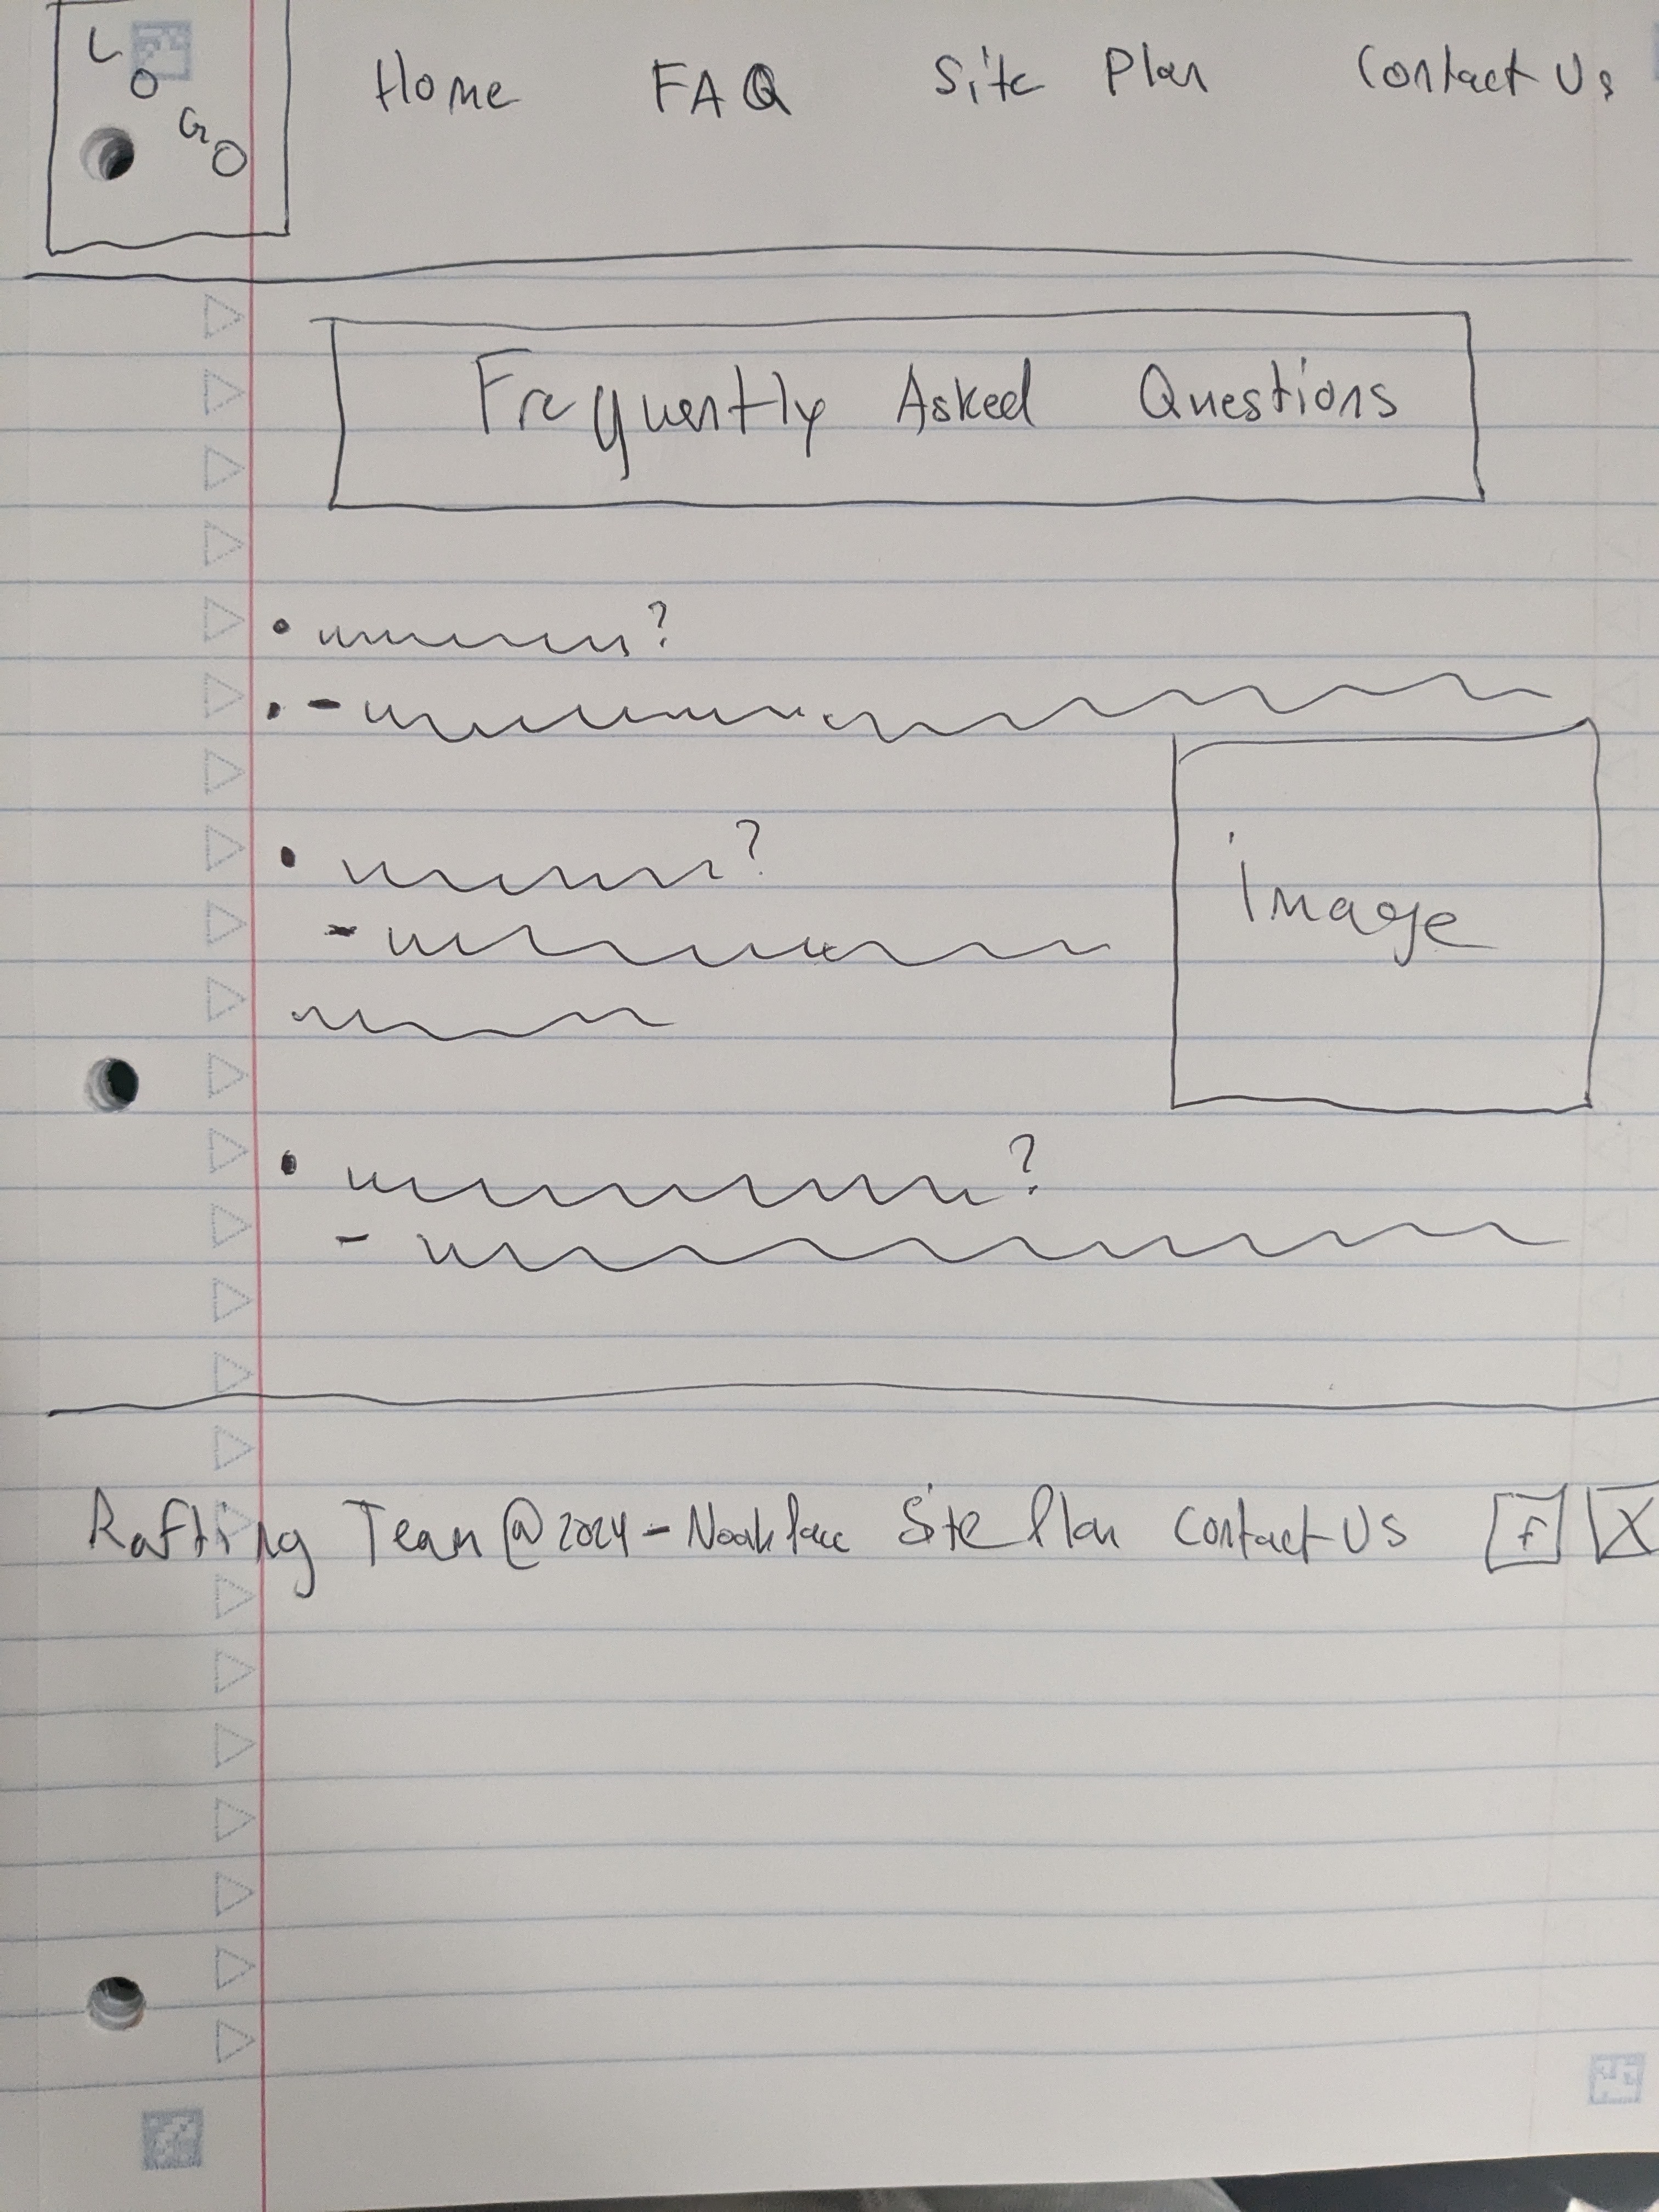 LOGO
Home FAQ Site Plan Contact Us
Frequently Asked Questions
?
?
Image
?
Rafting Team @2024 - Noah Site Plan Contact Us f X